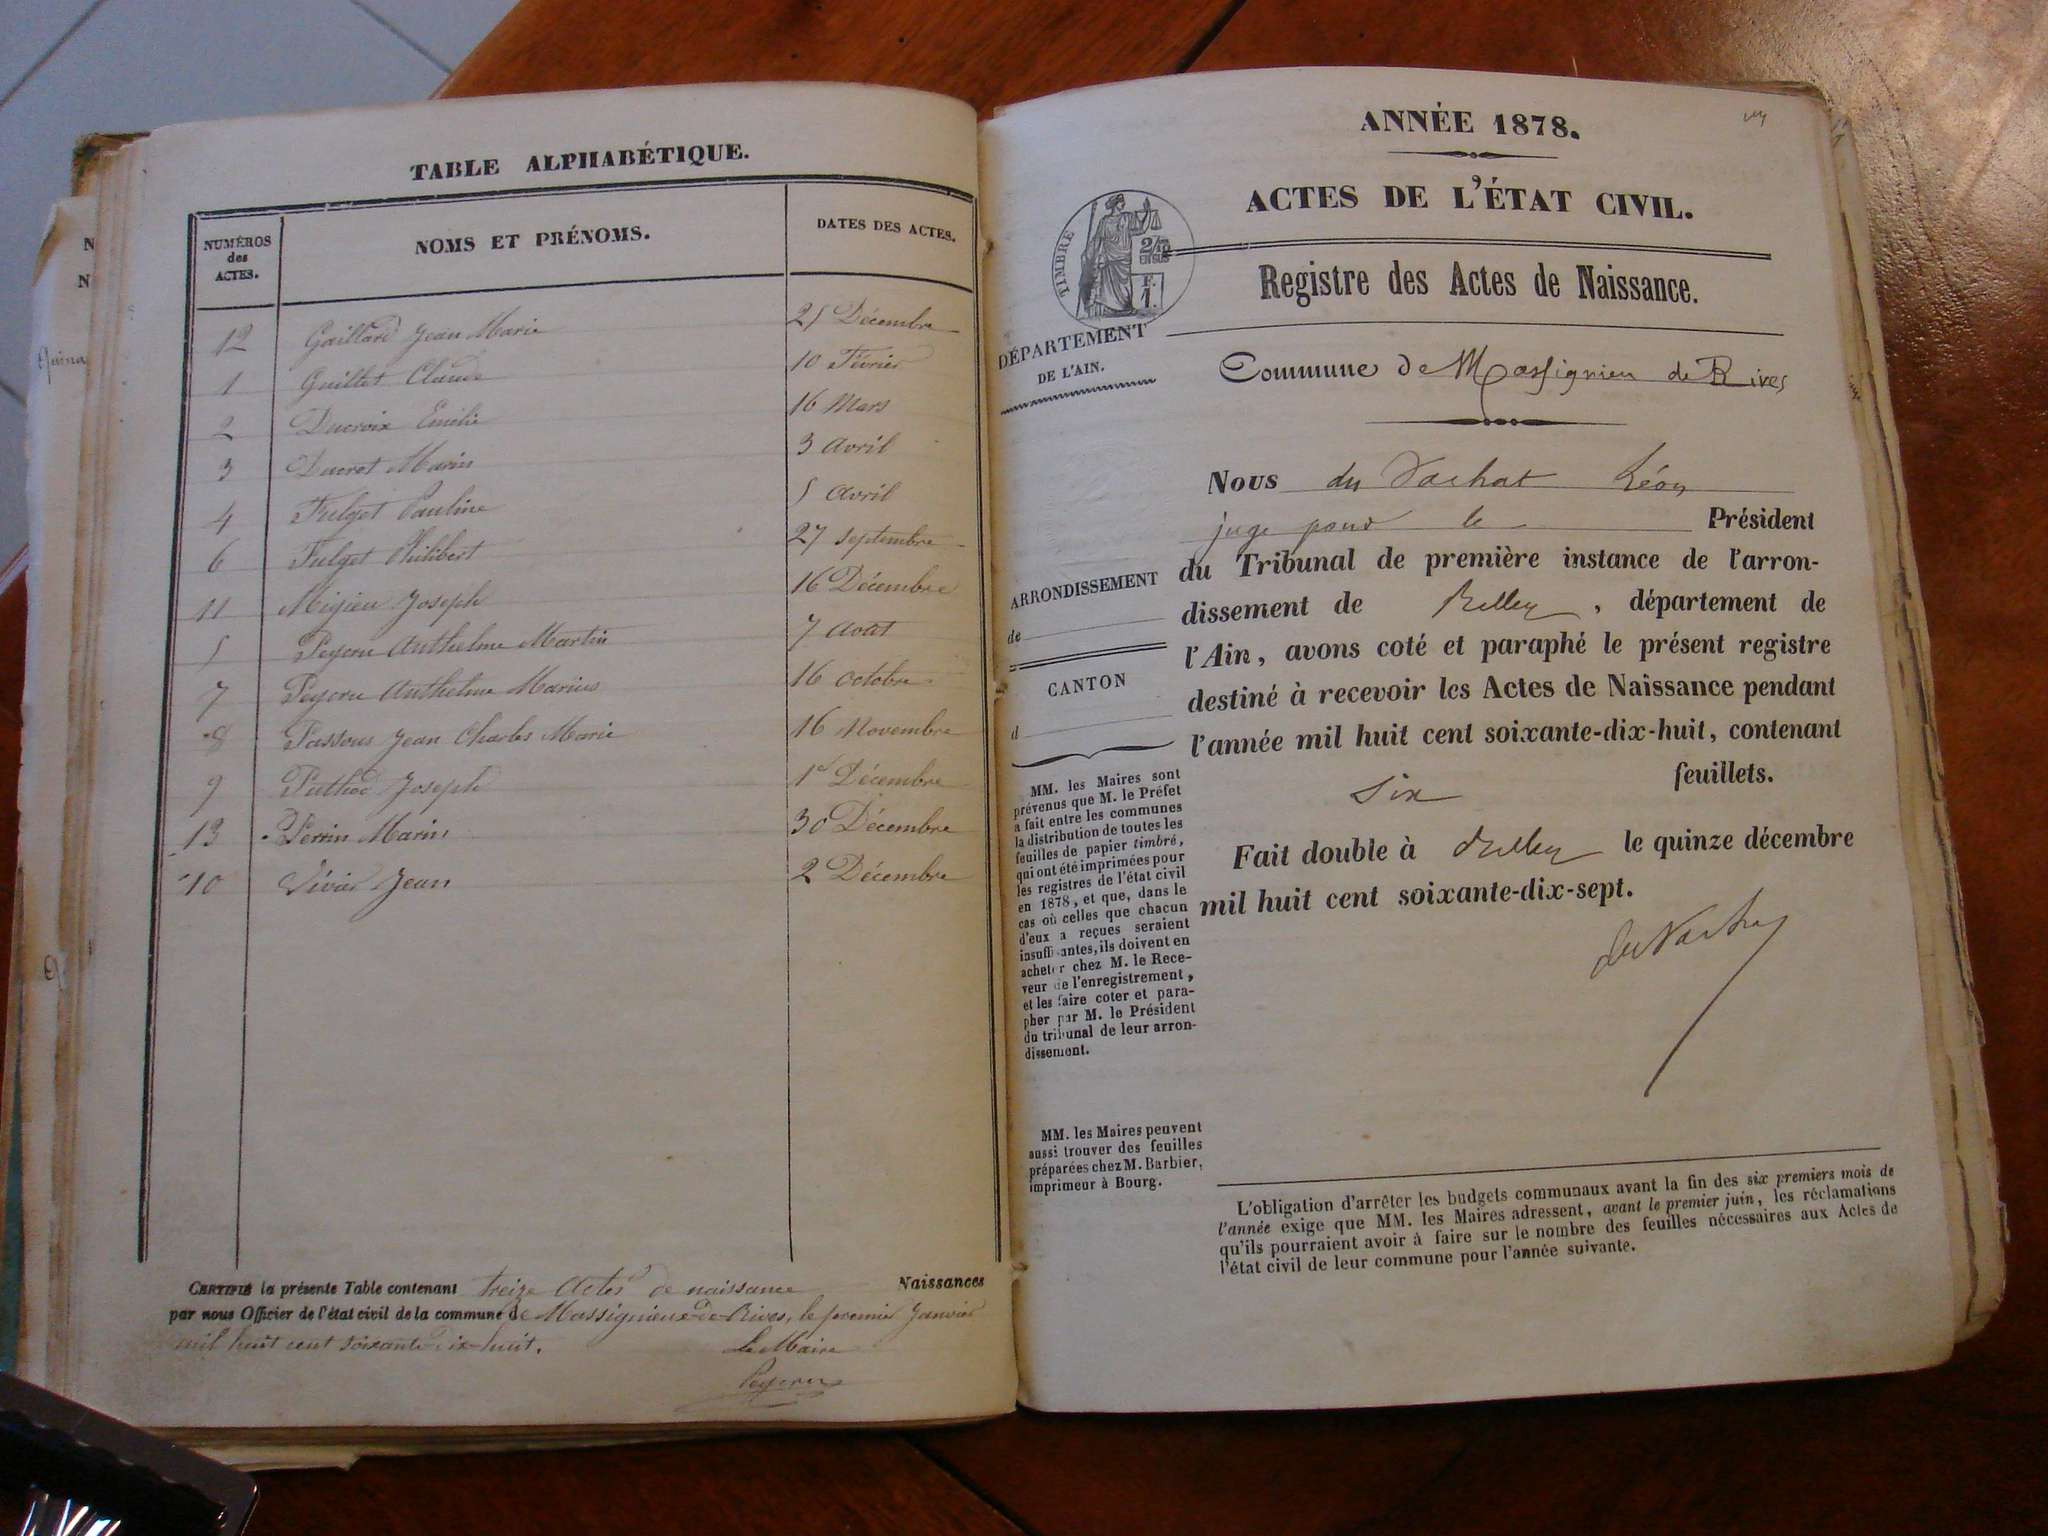 TABLE ALPHABÉTIQUE.
NUMÉROS des ACTES. NOMS ET PRÉNOMS. DATES DES ACTES.
12 Gaillard Jean Marie 25 Décembre
1 Guillet Claude 10 Février
2 Ducroix Emélie 16 Mars
3 Ducret Marin 3 Avril
4 Fulget Pauline 5 Avril
6 Fulget Philibert 27 Septembre
11 Migieu Joseph 16 Décembre
5 Peycru Anthelme Martin 7 Août
7 Peycru Anthelme Marius 16 Octobre
8 Jean Charles Marie 16 Novembre
9 Puthod Joseph 1er Décembre
13 Perrin Marin 30 Décembre
10 Jean 2 Décembre
CERTIFIÉ la présente Table contenant treize Actes de naissance Naissances
par nous Officier de l'état civil de la commune de Massignieu-de-Rives, le premier Janvier
mil huit cent soixante dix-huit. Le Maire
Peycru
ANNÉE 1878.
ACTES DE L'ÉTAT CIVIL.
TIMBRE
2/10 EN SUS
F. 1.
Registre des Actes de Naissance.
DÉPARTEMENT
DE L'AIN.
Commune de Massignieu de Rives
Nous du Vachat Léon
juge pour le Président
du Tribunal de première instance de l'arron-
dissement de Belley, département de
l'Ain, avons coté et paraphé le présent registre
destiné à recevoir les Actes de Naissance pendant
l'année mil huit cent soixante-dix-huit, contenant
six feuillets.
Fait double à Belley le quinze décembre
mil huit cent soixante-dix-sept.
du Vachat
ARRONDISSEMENT
de
CANTON
d
MM. les Maires sont
prévenus que M. le Préfet
a fait entre les communes
la distribution de toutes les
feuilles de papier timbré,
qui ont été imprimées pour
les registres de l'état civil
en 1878, et que, dans le
cas où celles que chacun
d'eux a reçues seraient
insuffisantes, ils doivent en
acheter chez M. le Rece-
veur de l'enregistrement,
et les faire coter et para-
pher par M. le Président
du tribunal de leur arron-
dissement.
MM. les Maires peuvent
aussi trouver des feuilles
préparées chez M. Barbier,
imprimeur à Bourg.
L'obligation d'arrêter les budgets communaux avant la fin des six premiers mois de
l'année exige que MM. les Maires adressent, avant le premier juin, les réclamations
qu'ils pourraient avoir à faire sur le nombre des feuilles nécessaires aux Actes de
l'état civil de leur commune pour l'année suivante.